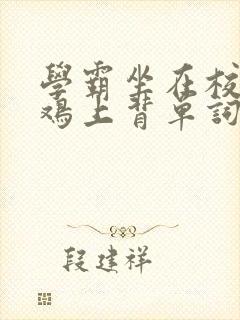 學霸坐在校
鴉上背單詞
段建祥